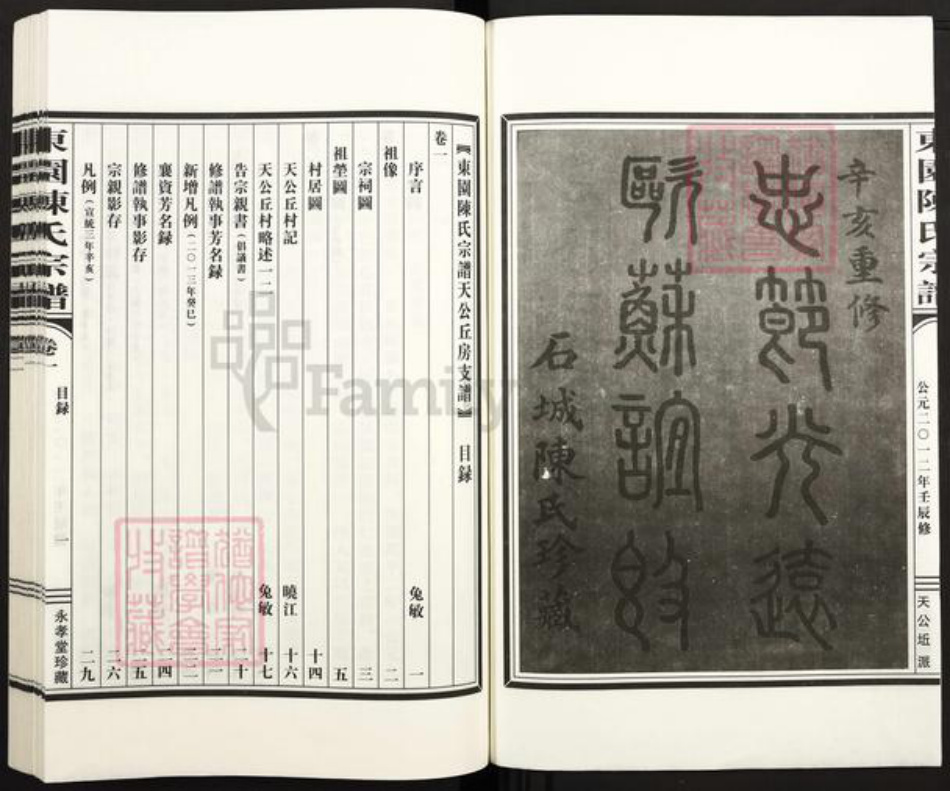 東園陳氏宗譜
公元二〇一二年壬辰修
天公坵派
辛亥重修
忠節光遠
歐蘇誼
石城陳氏珍藏
《東園陳氏宗譜天公丘房支譜》 目録
卷一
序言 兔敏 一
祖像 二
宗祠圖 三
祖塋圖 五
村居圖 十四
天公丘村記 曉江 十六
天公丘村略述一二 兔敏 十七
告宗親書（倡議書） 二十
修譜執事芳名録 二一
新增凡例（二〇一三年癸巳） 二二
襄資芳名録 二四
修譜執事影存 二五
宗親影存 二六
凡例（宣統三年辛亥） 二九
東園陳氏宗譜
卷一
目録
一
永孝堂珍藏
Family